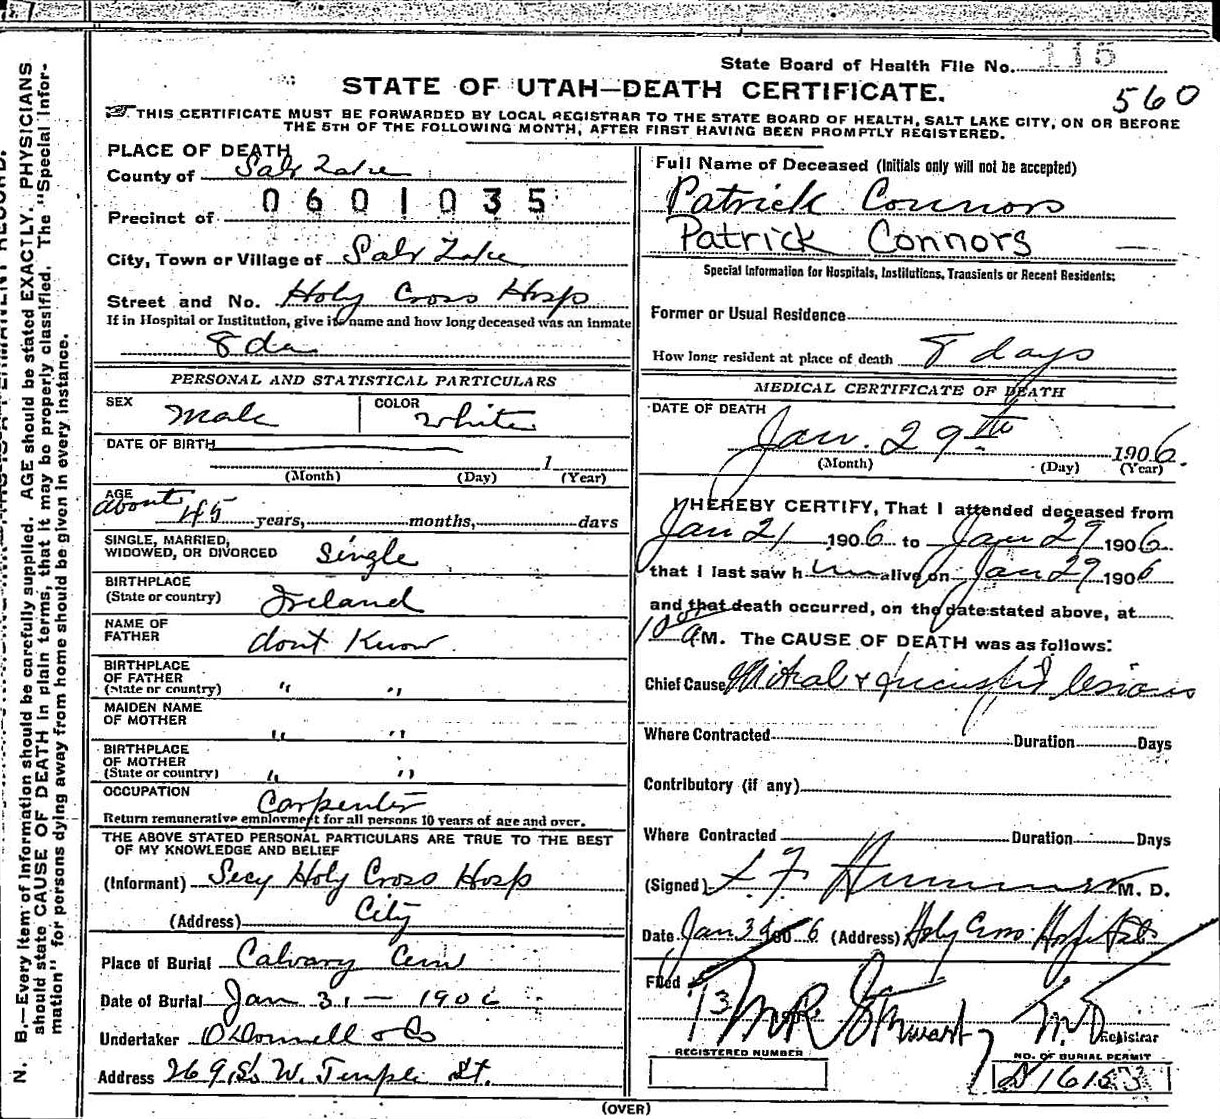 State Board of Health File No. 115
STATE OF UTAH—DEATH CERTIFICATE.
560
THIS CERTIFICATE MUST BE FORWARDED BY LOCAL REGISTRAR TO THE STATE BOARD OF HEALTH, SALT LAKE CITY, ON OR BEFORE
THE 5TH OF THE FOLLOWING MONTH, AFTER FIRST HAVING BEEN PROMPTLY REGISTERED.
PLACE OF DEATH
County of Salt Lake
0601035
Precinct of
City, Town or Village of Salt Lake
Street and No. Holy Cross Hosp
If in Hospital or Institution, give its name and how long deceased was an inmate
8 da
PERSONAL AND STATISTICAL PARTICULARS
SEX Male COLOR White
DATE OF BIRTH
1
(Month) (Day) (Year)
AGE
about 45 years, months, days
SINGLE, MARRIED,
WIDOWED, OR DIVORCED Single
BIRTHPLACE
(State or country) Ireland
NAME OF
FATHER dont Know
BIRTHPLACE
OF FATHER
(State or country) " "
MAIDEN NAME
OF MOTHER
" "
BIRTHPLACE
OF MOTHER
(State or country) " "
OCCUPATION Carpenter
Return remunerative employment for all persons 10 years of age and over.
THE ABOVE STATED PERSONAL PARTICULARS ARE TRUE TO THE BEST
OF MY KNOWLEDGE AND BELIEF
(Informant) Secy Holy Cross Hosp
(Address) City
Place of Burial Calvary Cem
Date of Burial Jan 31 — 1906
Undertaker O'Donnell & Co
Address 269 So W. Temple St.
Full Name of Deceased (Initials only will not be accepted)
Patrick Connors
Patrick Connors
Special Information for Hospitals, Institutions, Transients or Recent Residents:
Former or Usual Residence
How long resident at place of death 8 days
MEDICAL CERTIFICATE OF DEATH
DATE OF DEATH
Jan. 29th 1906.
(Month) (Day) (Year)
I HEREBY CERTIFY, That I attended deceased from
Jan 21 1906 to Jan 29 1906
that I last saw him alive on Jan 29 1906
and that death occurred, on the date stated above, at
10 a M. The CAUSE OF DEATH was as follows:
Chief Cause Mitral & tricuspid lesions
Where Contracted Duration Days
Contributory (if any)
Where Contracted Duration Days
(Signed) M. D.
Date Jan 30 1906 (Address) Holy Cross Hospital
Filed
M R Stewart M.D.
Registrar
REGISTERED NUMBER
NO. OF BURIAL PERMIT
(OVER)
N. B.—Every item of information should be carefully supplied. AGE should be stated EXACTLY. PHYSICIANS
should state CAUSE OF DEATH in plain terms, that it may be properly classified. The "Special Infor-
mation" for persons dying away from home should be given in every instance.